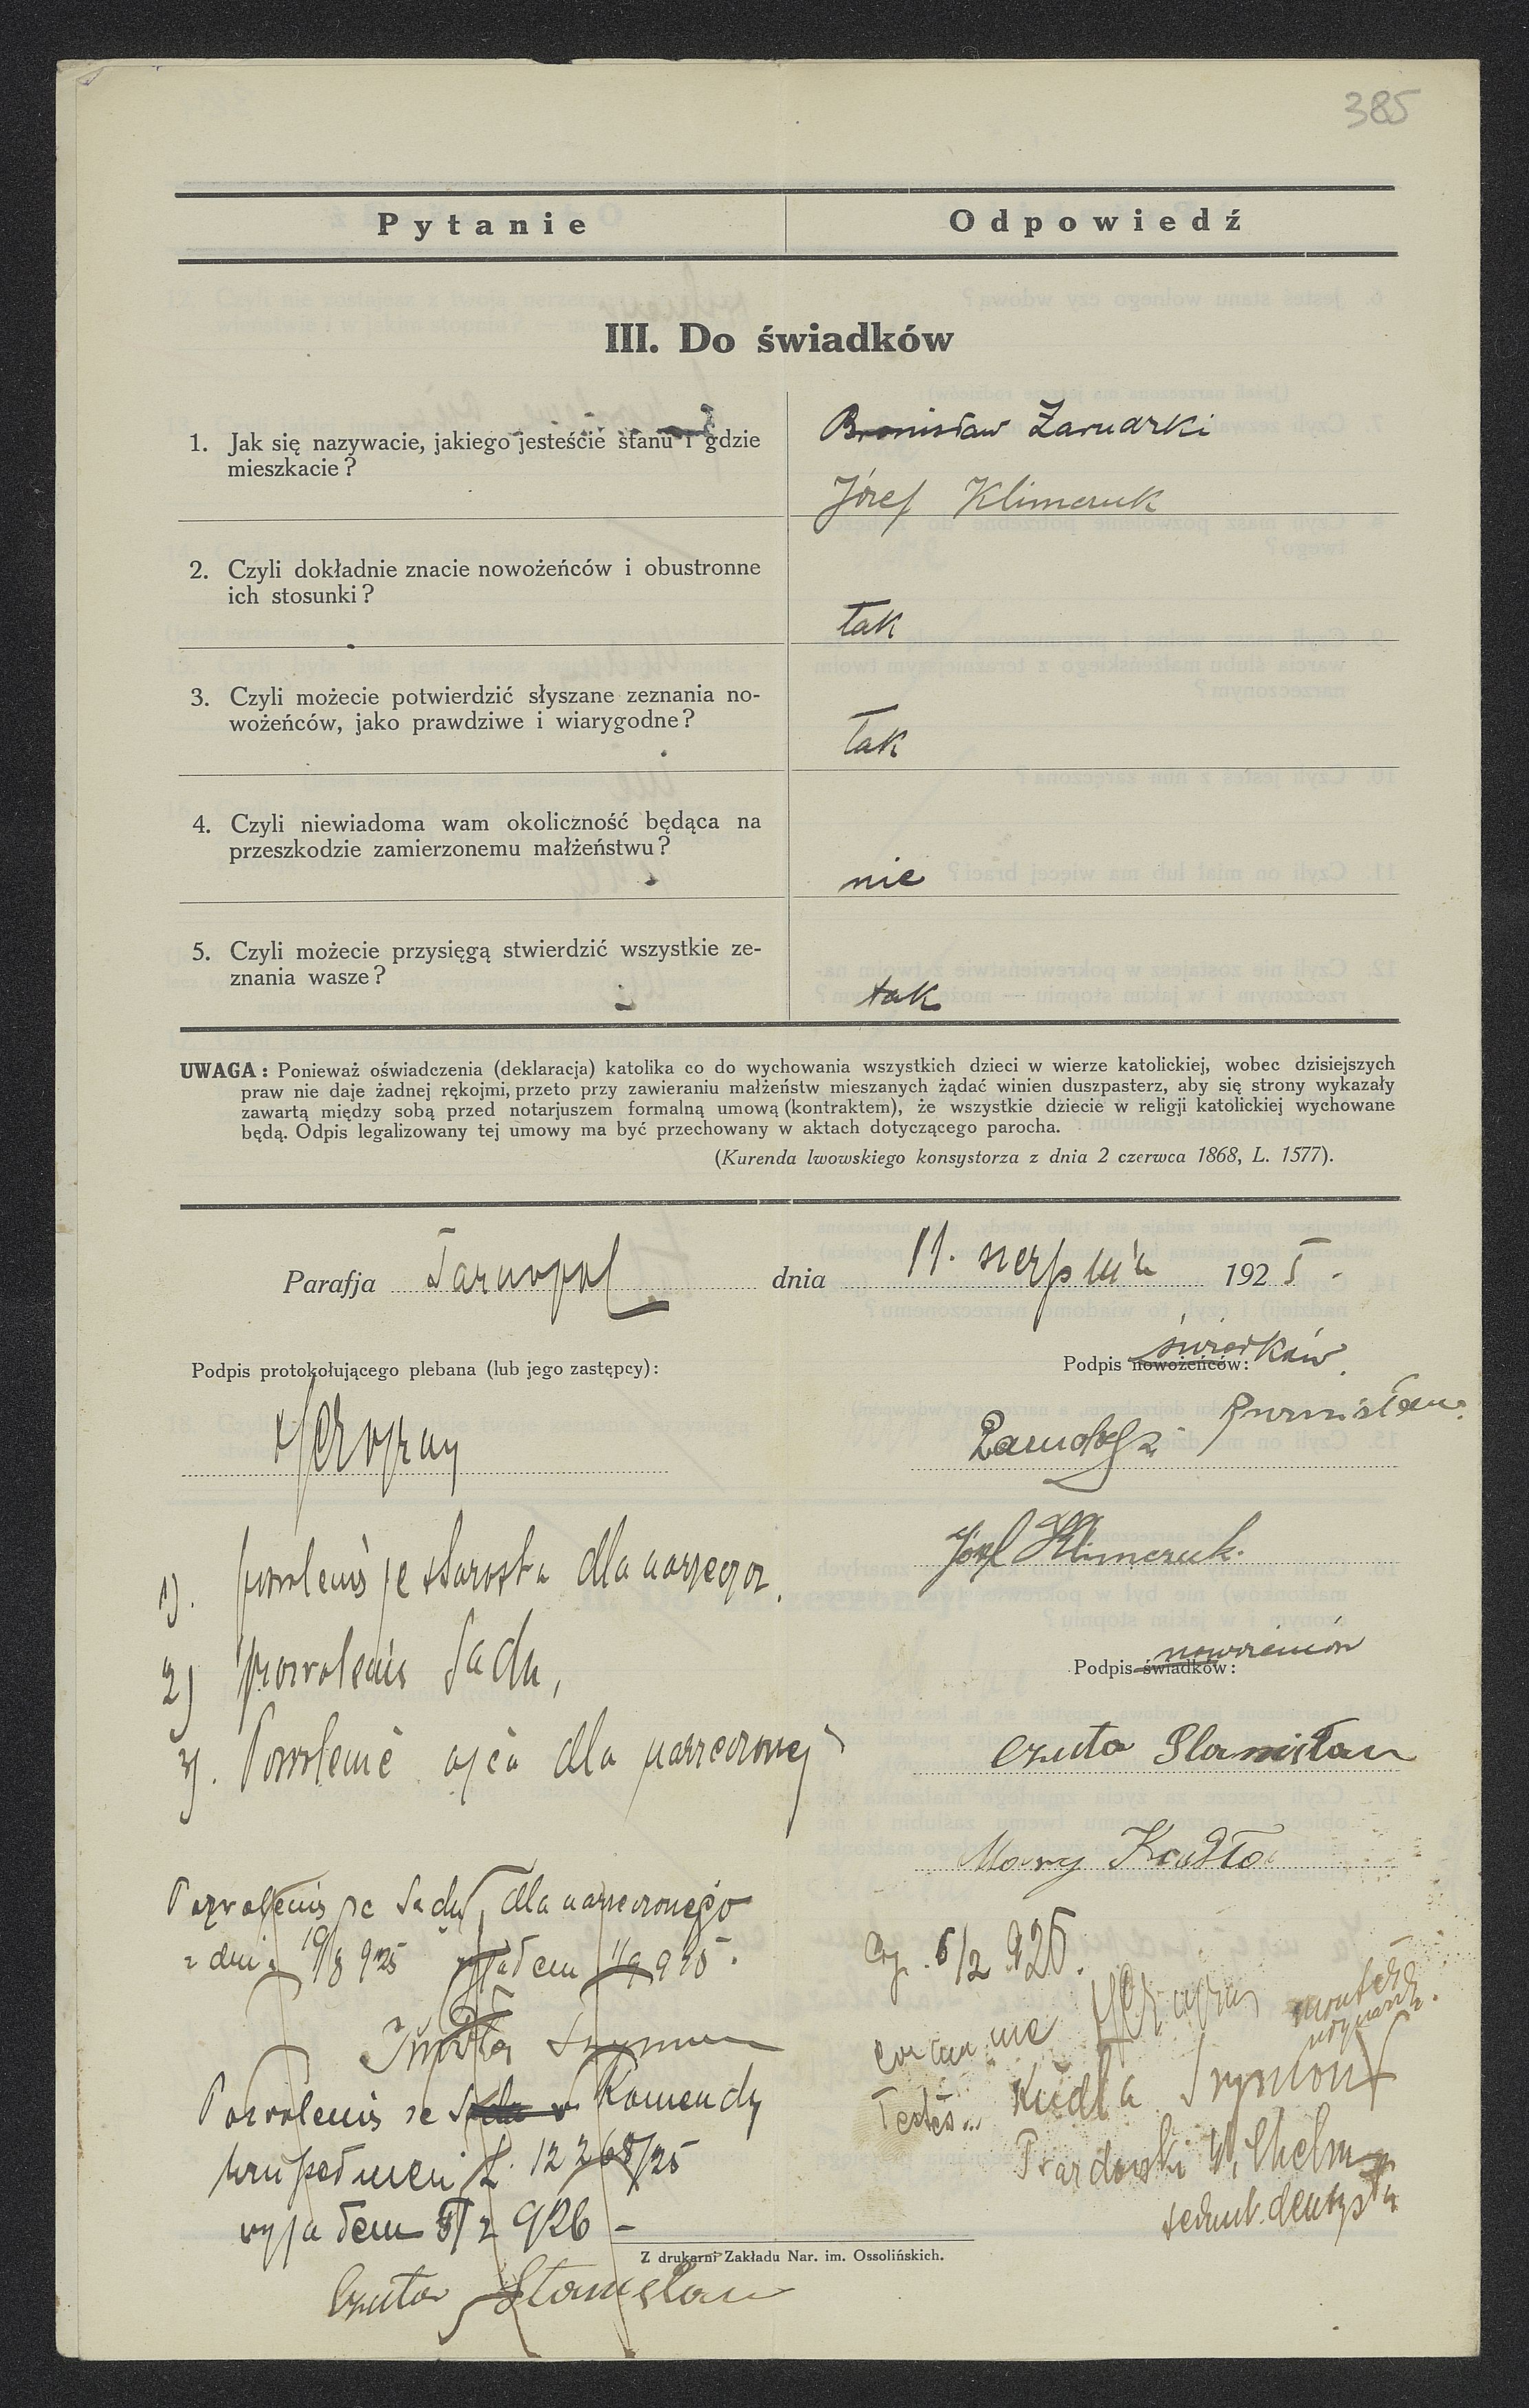 385
Pytanie
Odpowiedź
III. Do świadków
1. Jak się nazywacie, jakiego jesteście stanu i gdzie
mieszkacie?
Bronisław Zarudzki
Józef Klimczuk
2. Czyli dokładnie znacie nowożeńców i obustronne
ich stosunki?
tak
3. Czyli możecie potwierdzić słyszane zeznania no-
wożeńców, jako prawdziwe i wiarygodne?
tak
4. Czyli niewiadoma wam okoliczność będąca na
przeszkodzie zamierzonemu małżeństwu?
nie
5. Czyli możecie przysięgą stwierdzić wszystkie ze-
znania wasze?
tak
UWAGA: Ponieważ oświadczenia (deklaracja) katolika co do wychowania wszystkich dzieci w wierze katolickiej, wobec dzisiejszych
praw nie daje żadnej rękojmi, przeto przy zawieraniu małżeństw mieszanych żądać winien duszpasterz, aby się strony wykazały
zawartą między sobą przed notarjuszem formalną umową (kontraktem), że wszystkie dziecie w religji katolickiej wychowane
będą. Odpis legalizowany tej umowy ma być przechowany w aktach dotyczącego parocha.
(Kurenda lwowskiego konsystorza z dnia 2 czerwca 1868, L. 1577).
Parafja Tarnopol dnia 11. sierpnia 1925.
świadków
Podpis protokołującego plebana (lub jego zastępcy):
Podpis nowożeńców:
Bronisław
Józef Klimczuk.
1). pozwolenie ze starostwa dla narzeczon.
2) pozwolenie Sadu,
3). Pozwolenie ojca dla narzeczonej
nowożeńców
Podpis świadków:
Czuta Stanisław
Mary Kudło
Pozwolenie ze Sadu, dla narzeczonego
z dnia 19/8 925
Pozwolenie ze Sadu Komendy
L. 12268/25
wyjąłem 5/2 926 –
Czuta Stanisław
6/2 926.
coram me
Testes: Kudła Szymon
monter
Wilhelm
technik dentyst.
Z drukarni Zakładu Nar. im. Ossolińskich.